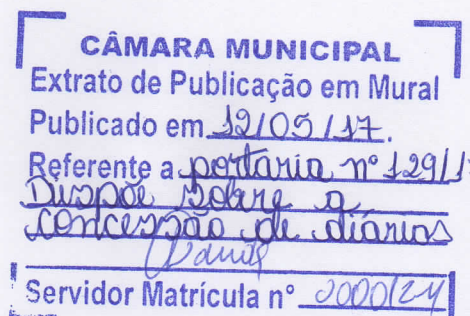 CÂMARA MUNICIPAL
Extrato de Publicação em Mural
Publicado em 12/05/17.
Referente a portaria nº 129/1
Dispõe sobre a
concessão de diárias
Servidor Matrícula nº 2000/24